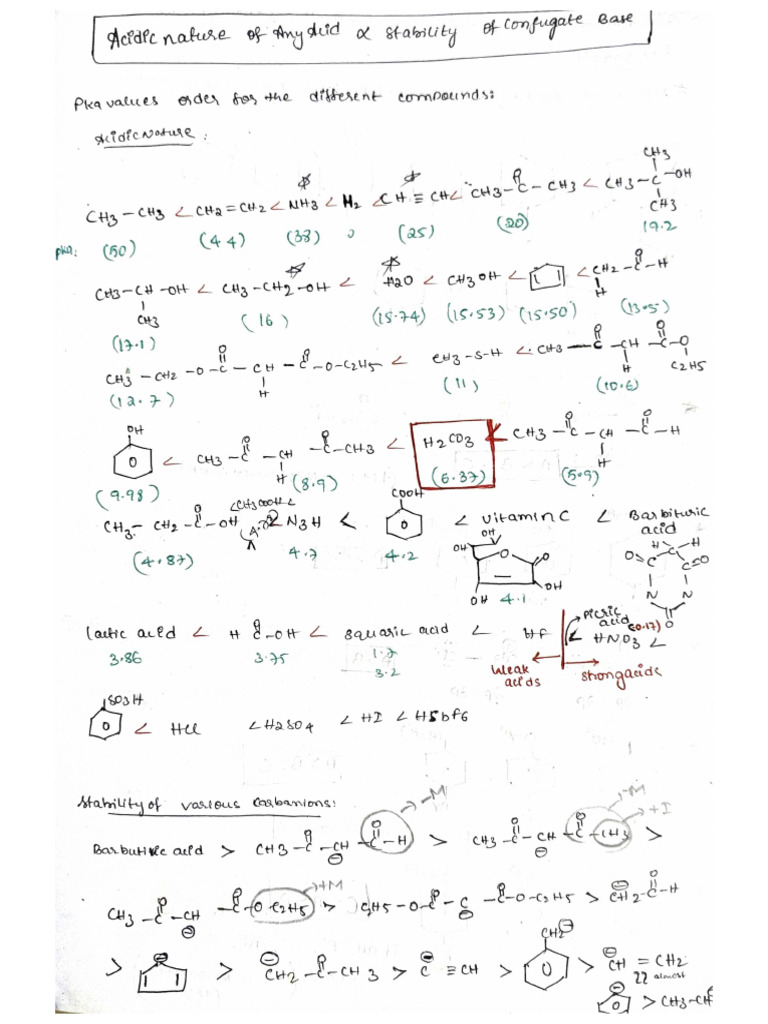 Acidic nature of Any Acid ∝ stability of conjugate Base
Pka values order for the different compounds:
Acidic Nature:
CH3-CH3 < CH2=CH2 < NH3 < H2 < CH≡CH < CH3-C(=O)-CH3 < CH3-C(CH3)(CH3)-OH
pka: (50) (44) (38) (25) (20) 19.2
CH3-CH(CH3)-OH < CH3-CH2-OH < H2O < CH3OH < < CH2(H)-C(=O)-H
(17.1) (16) (15.74) (15.53) (15.50) (13.5)
CH3-CH2-O-C(=O)-CH(H)-C(=O)-O-C2H5 < CH3-S-H < CH3-C(=O)-CH(H)-C(=O)-O C2H5
(12.7) (11) (10.6)
OH < CH3-C(=O)-CH(H)-C(=O)-CH3 < H2CO3 < CH3-C(=O)-CH(H)-C(=O)-H
(9.98) (8.9) (6.37) (5.9)
CH3-CH2-C(=O)-OH <CH3COOH< N3H < COOH < Vitamin C < Barbituric acid
(4.87) 4.7 4.2 4.1
OH OH O O OH OH
H C H O=C C=O N N O
lactic acid < H-C(=O)-OH < squaric acid < HF < HNO3 <
picric acid (0.17)
3.86 3.75 1.7
3.2
weak acids
strong acids
SO3H < HCl < H2SO4 < HI < HSbF6
Stability of various carbanions:
Barbuturic acid > CH3-C(=O)-CH⊖-C(=O)-H > CH3-C(=O)-CH⊖-C(=O)-CH3 >
-M -M +I
CH3-C(=O)-CH⊖-C(=O)-O C2H5 > C2H5-O-C(=O)-C⊖-C(=O)-O-C2H5 > ⊖CH2-C(=O)-H
+M
> ⊖ > ⊖CH2-C(=O)-CH3 > ⊖C≡CH > CH2⊖ > ⊖CH=CH2
22 almost
⊖ > CH3-CH